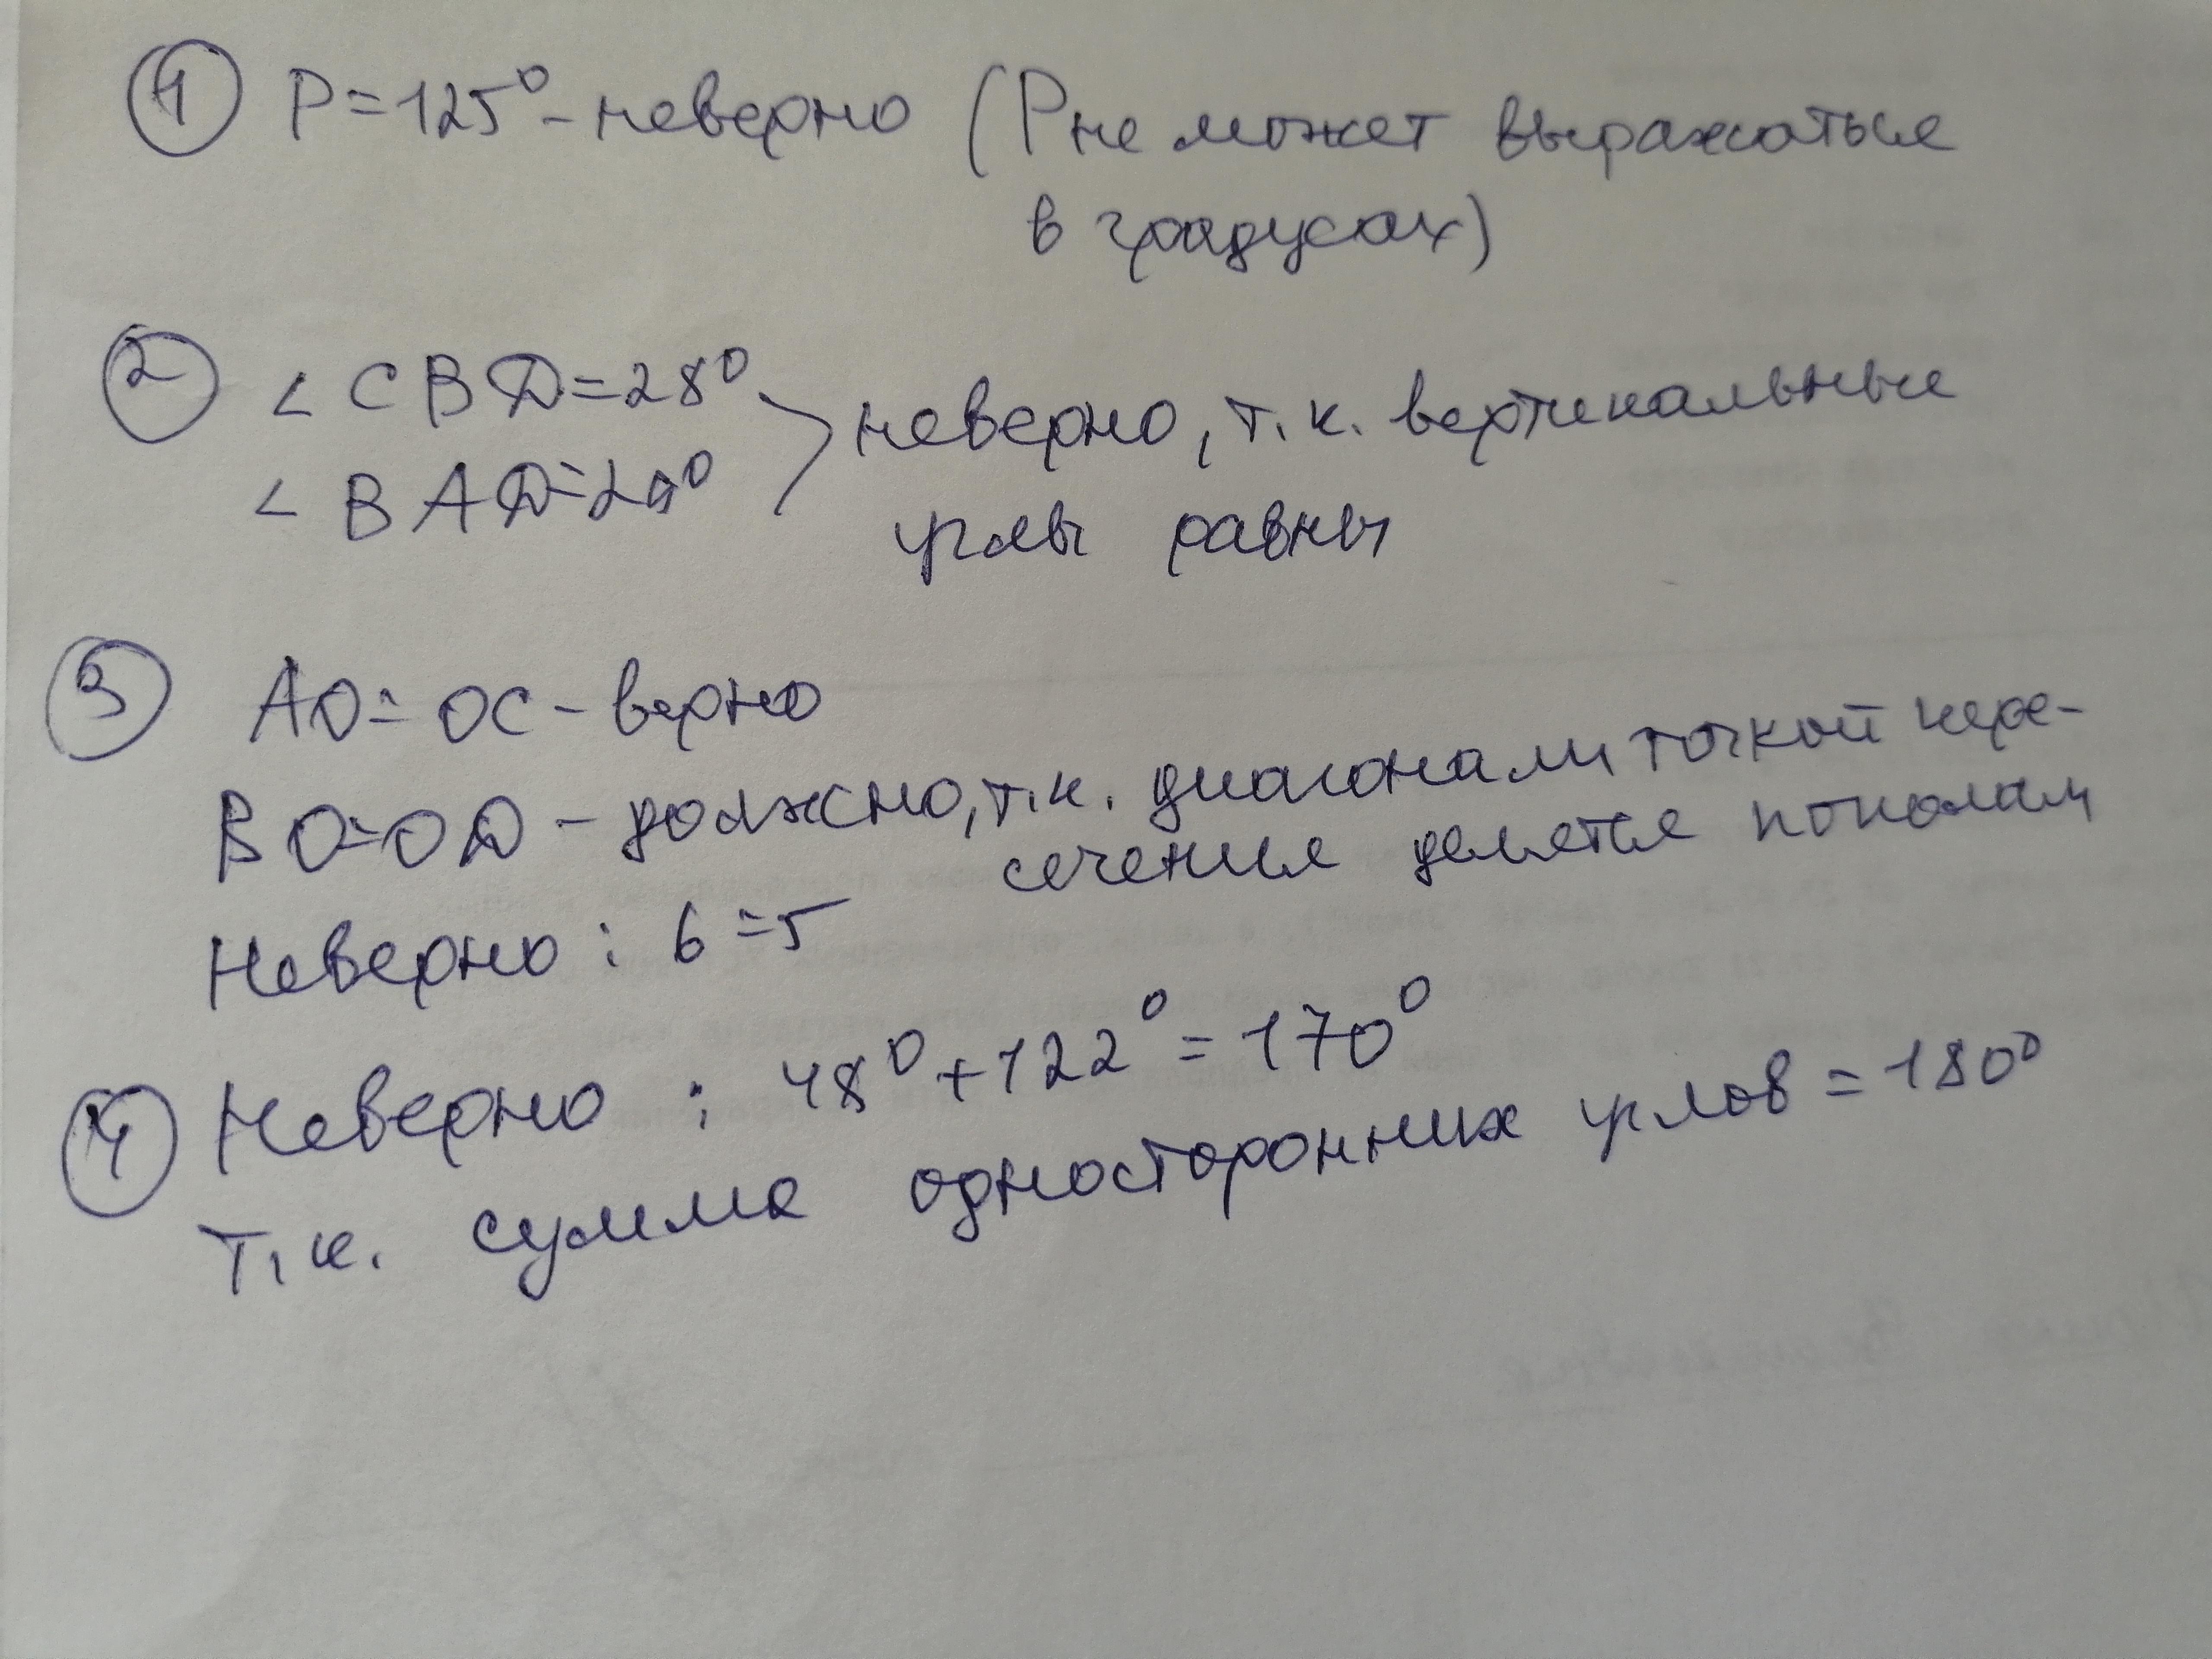 1 P=125° - неверно (P не может выражаться
в градусах)
2 < CBD=28°
< BAD=
неверно, т.к. вертикальные
углы равны
3 AO=OC - верно
BO=OD - должно, т.к. диагонали точкой пере-
сечения делятся пополам
Неверно: 6=5
4 Неверно: 48°+122°=170°
т.к. сумма односторонних углов = 180°